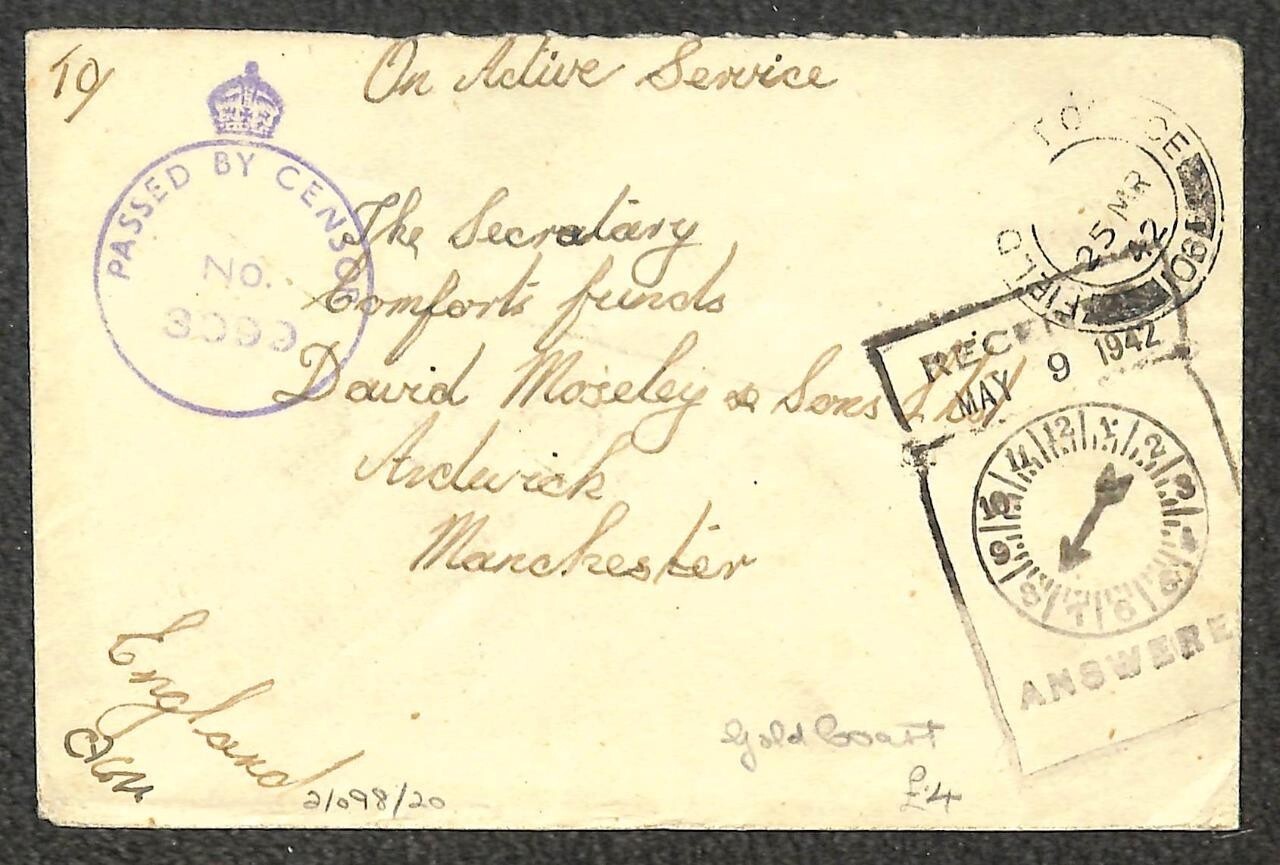 To
On Active Service
PASSED BY CENSOR
No.
3099
FIELD POST OFFICE
25 MR
42
190
The Secratary
Comforts funds
David Moseley & Sons Ltd
Ardwick
Manchester
England
RECEIVED
MAY 9 1942
12 1 2 3 4 5 6 7 8 9 10 11
ANSWERE
Gold Coast
£4
21098/20